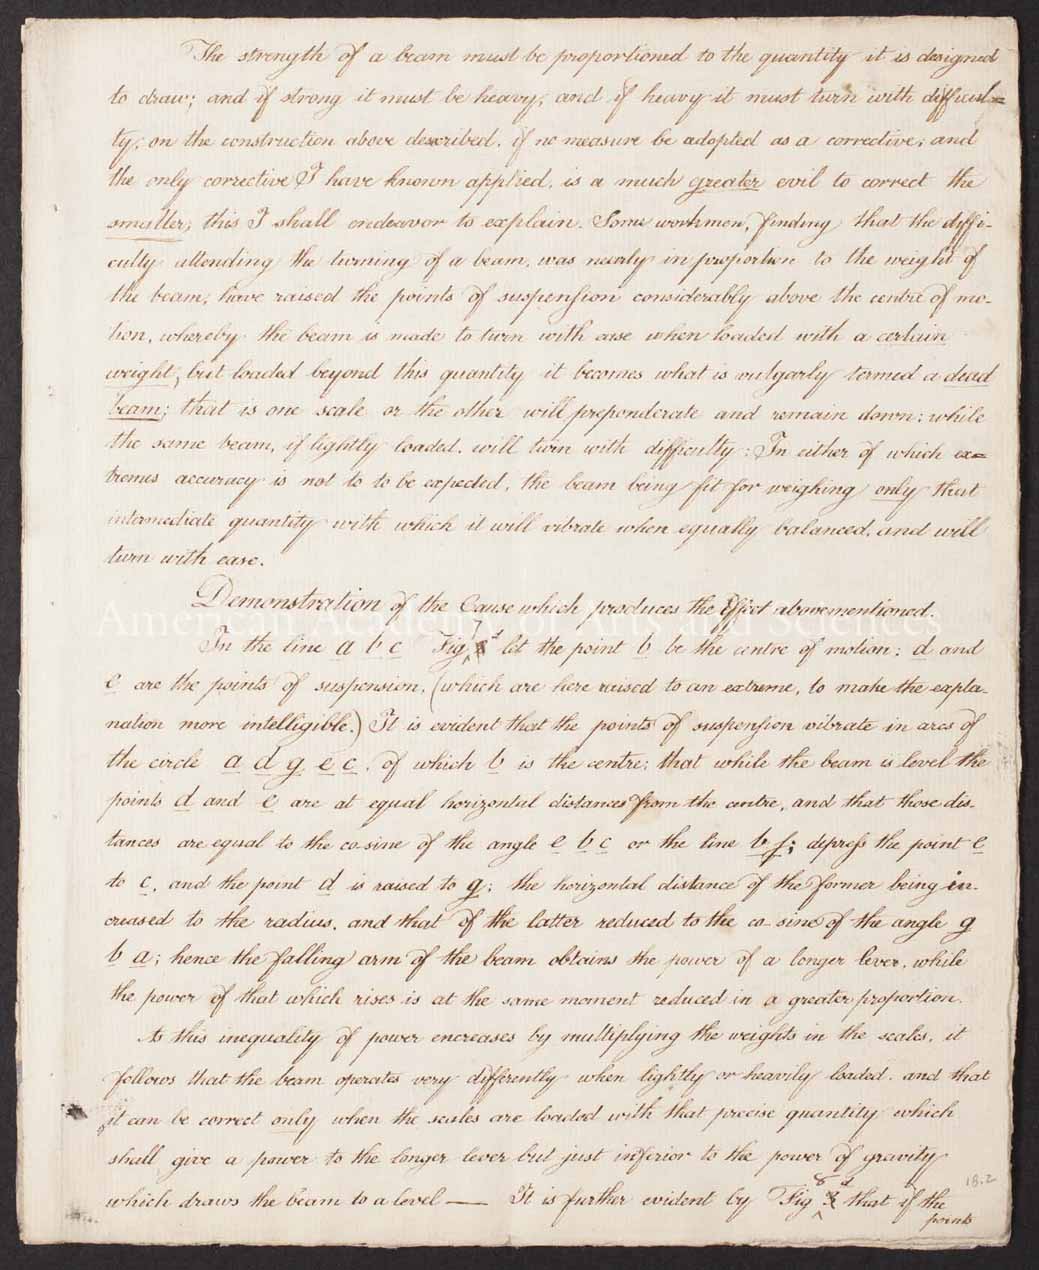 The strength of a beam must be proportioned to the quantity it is designed
to draw; and if strong it must be heavy; and if heavy it must turn with difficul=
ty; on the construction above described, if no measure be adopted as a corrective; and
the only corrective I have known applied, is a much greater evil to correct the
smaller; this I shall endeavor to explain. Some workmen, finding that the diffi-
culty attending the turning of a beam, was nearly in proportion to the weight of
the beam; have raised the points of suspension considerably above the centre of mo-
tion, whereby the beam is made to turn with ease when loaded with a certain
weight, but loaded beyond this quantity it becomes what is vulgarly termed a dead
beam; that is one scale or the other will preponderate and remain down: while
the same beam, if lightly loaded, will turn with difficulty: In either of which ex=
tremes accuracy is not to to be expected, the beam being fit for weighing only that
intermediate quantity with which it will vibrate when equally balanced, and will
turn with ease.
Demonstration of the Cause which produces the effect abovementioned.
In the line a b c Fig 7 let the point b be the centre of motion: d and
e are the points of suspension, (which are here raised to an extreme, to make the expla-
nation more intelligible.) It is evident that the points of suspension vibrate in arcs of
the circle a d g e c, of which b is the centre; that while the beam is level the
points d and e are at equal horizontal distances from the centre, and that those dis-
tances are equal to the co-sine of the angle e b c or the line b f; depress the point e
to c, and the point d is raised to g; the horizontal distance of the former being in-
creased to the radius, and that of the latter reduced to the co-sine of the angle g
b a; hence the falling arm of the beam obtains the power of a longer lever, while
the power of that which rises is at the same moment reduced in a greater proportion.
As this inequality of power encreases by multiplying the weights in the scales, it
follows that the beam operates very differently when lightly or heavily loaded, and that
it can be correct only when the scales are loaded with that precise quantity which
shall give a power to the longer lever but just inferior to the power of gravity
which draws the beam to a level — It is further evident by Fig 8 that if the
points
18.2
American Academy of Arts and Sciences